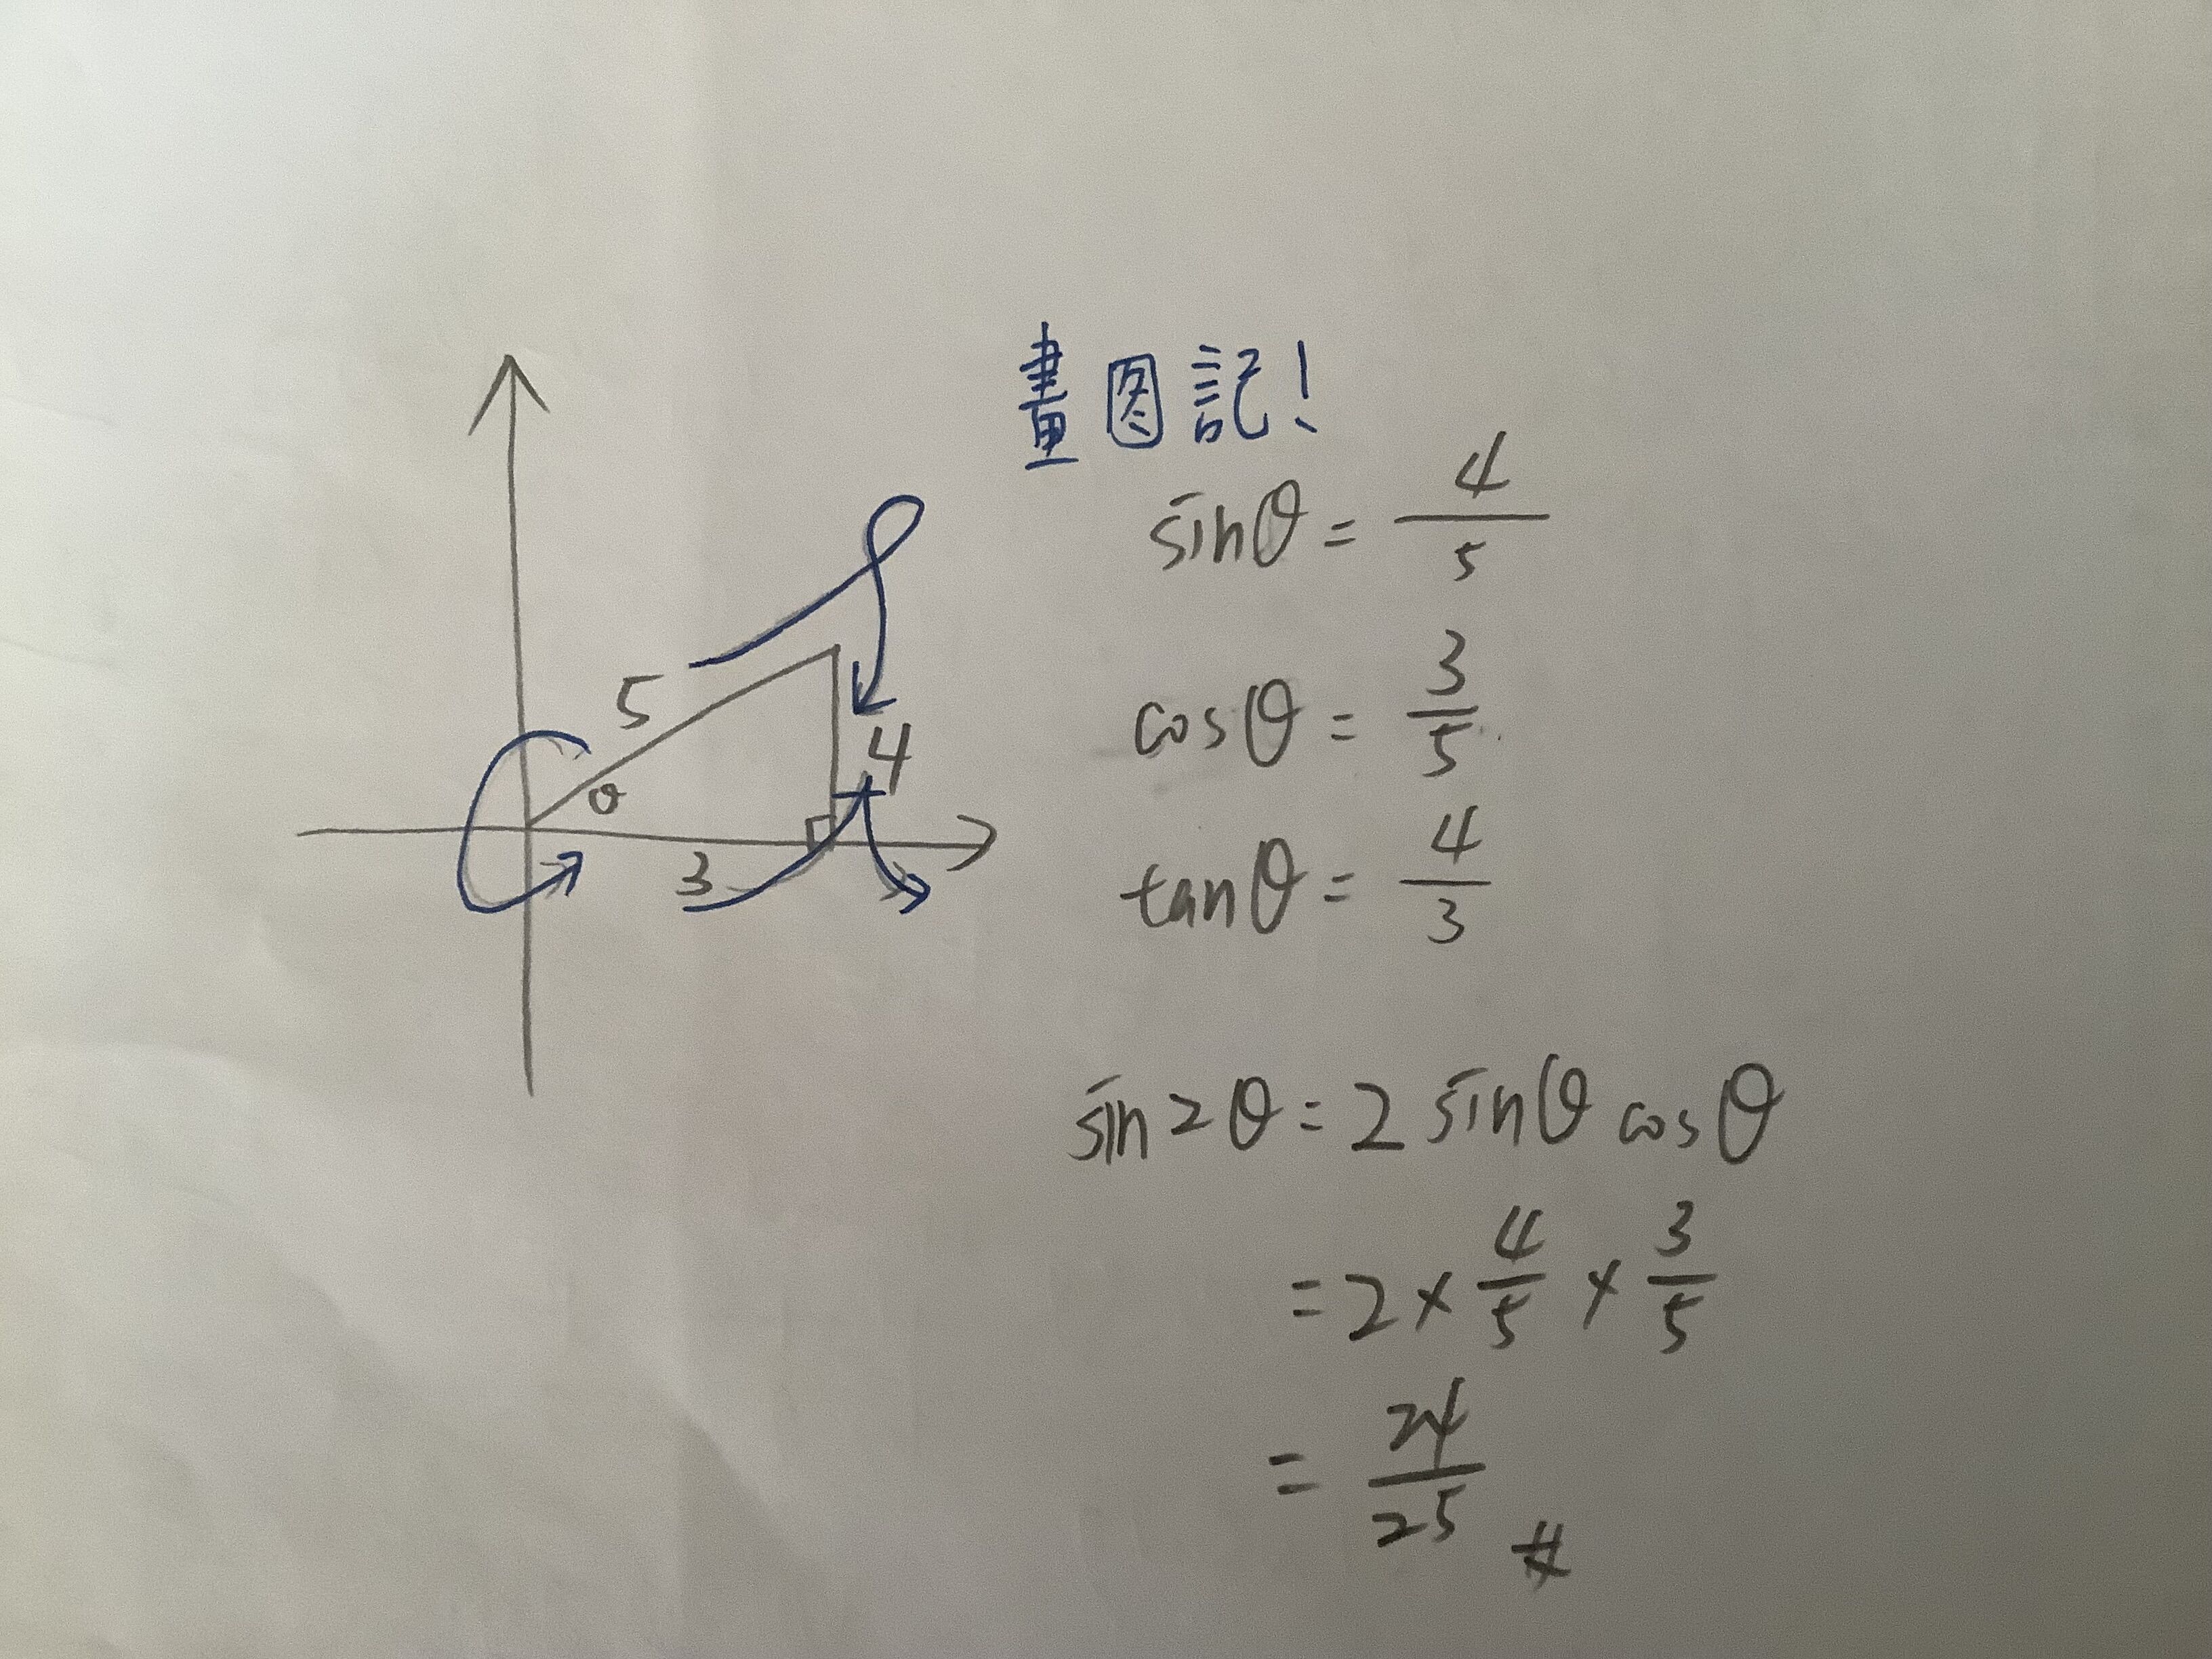 畫图記!
sinθ = 4/5
5
4
θ
3
cosθ = 3/5
tanθ = 4/3
sin2θ = 2 sinθ cosθ
= 2 × 4/5 × 3/5
= 24/25 #